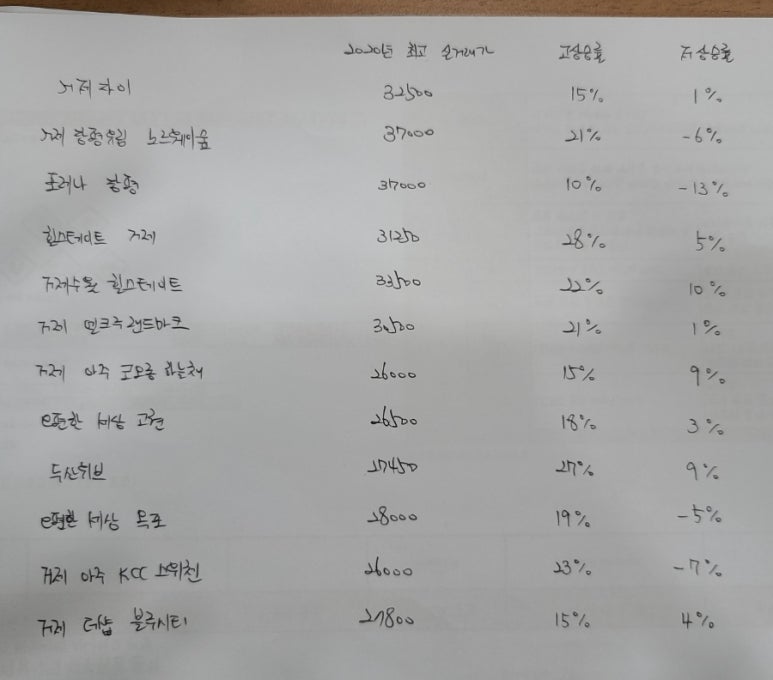 2020년 최고 실거래가 고상승률 저상승률
거제자이 32500 15% 1%
거제 장평유림 노르웨이숲 37000 21% -6%
포레나 장평 37000 10% -13%
힐스테이트 거제 31250 28% 5%
거제수월 힐스테이트 33500 22% 10%
거제 마크 30500 21% 1%
거제 아주 코오롱 하늘채 26000 15% 9%
e편한 세상 고현 26500 18% 3%
두산위브 27450 27% 9%
e편한 세상 옥포 28000 19% -5%
거제 아주 KCC 스위첸 26000 23% -7%
거제 더샵 블루시티 27800 15% 4%